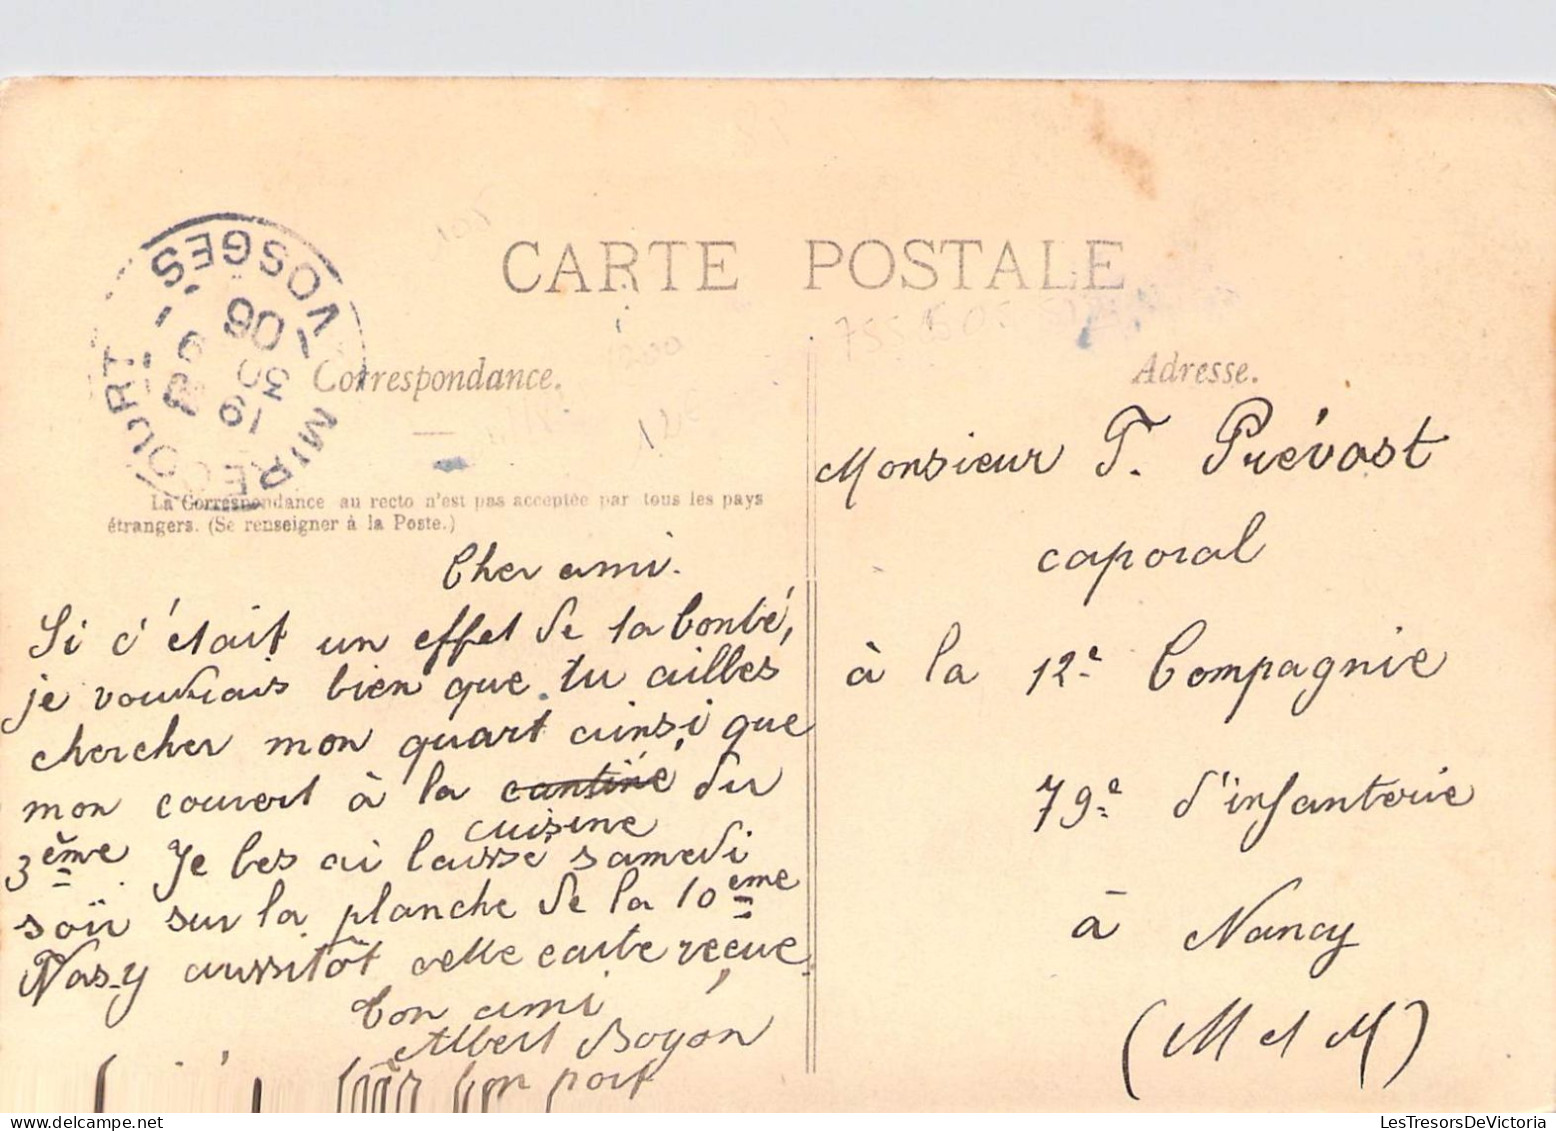 CARTE POSTALE
MIRECOURT
VOSGES
19
30
9
06
Correspondance.
La Correspondance au recto n'est pas acceptée par tous les pays
étrangers. (Se renseigner à la Poste.)
Cher ami.
Si c'était un effet de ta bonté,
je voudrais bien que tu ailles
chercher mon quart ainsi que
mon couvert à la cantine du
cuisine
3ème. Je les ai laissé samedi
soir sur la planche de la 10ème
Vas-y aussitôt cette carte reçue.
Ton ami
Albert Boyon
bon port
Adresse.
Monsieur T. Prévost
caporal
à la 12e Compagnie
79e d'infanterie
à Nancy
(M et M)
LesTresorsDeVictoria